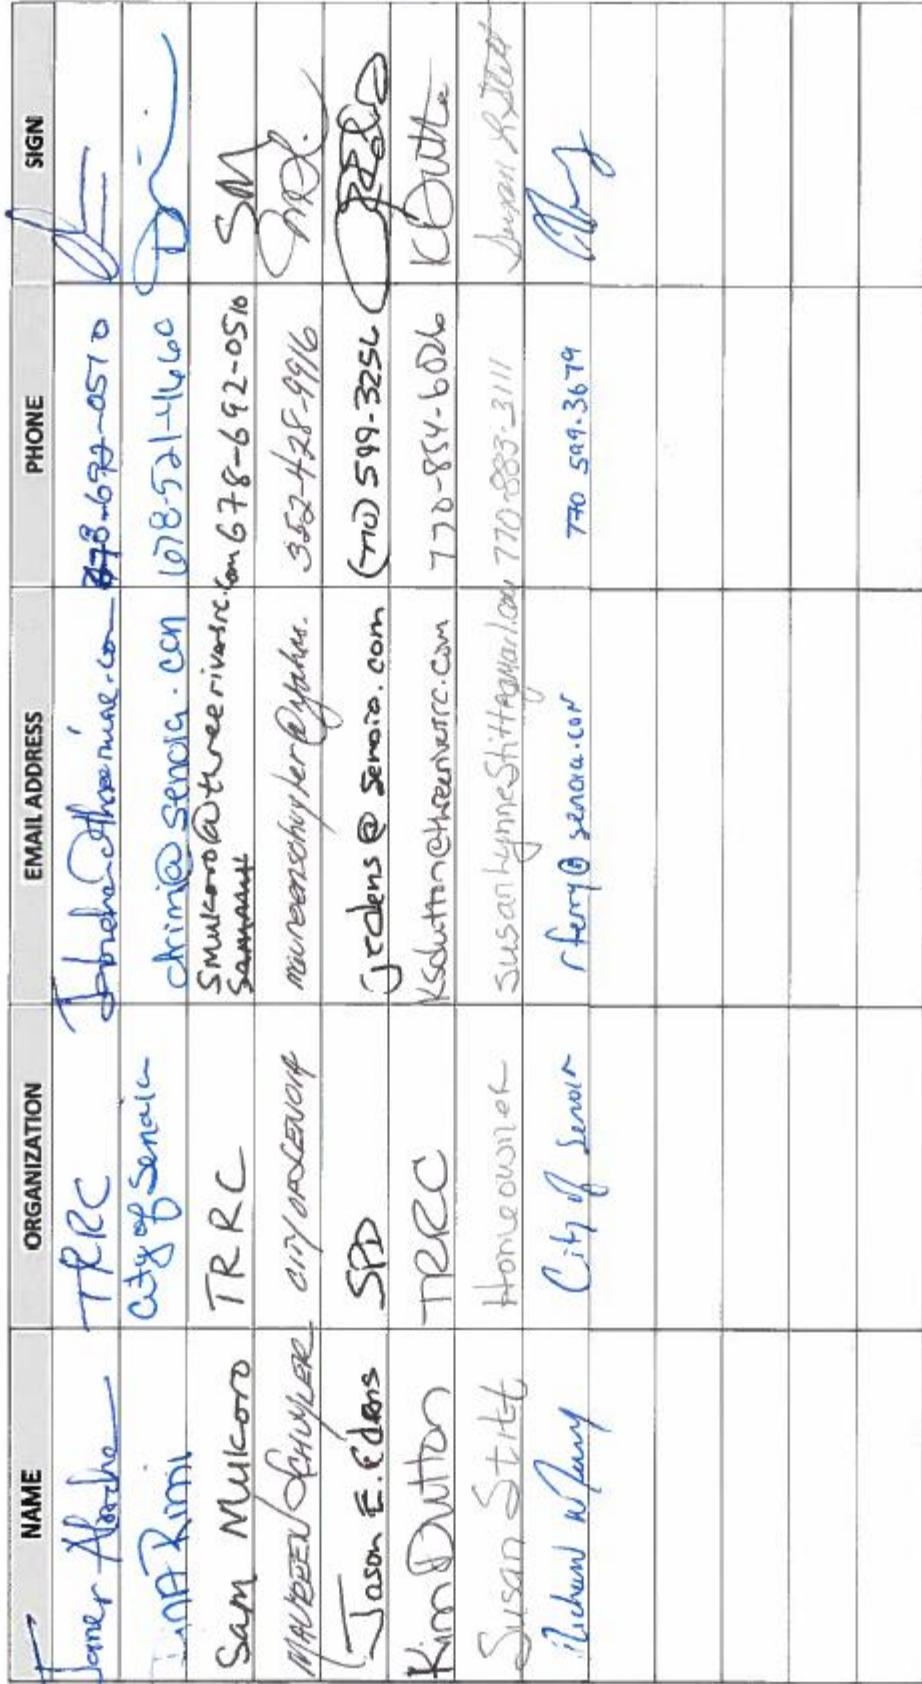 NAME ORGANIZATION EMAIL ADDRESS PHONE SIGN
TRRC 678-692-0510
Rimi City of Senoia drimi@senoia.com 678-521-4660
Sam Mukoro TRRC smukoro@threeriversrc.com 678-692-0510 SM
MAUREEN SCHUYLER CITY OF SENOIA maureenschuyler@yahoo. 352-428-9916
Jason E. Edens SPD jedens@senoia.com (770) 599-3256
Kim Dutton TRRC ksdutton@threeriversrc.com 770-854-6026 K Dutton
Susan Stitt Homeowner susanlynnestitt@gmail.com 770-883-3111 Susan L Stitt
City of Senoia rferry@senoia.com 770 599.3679